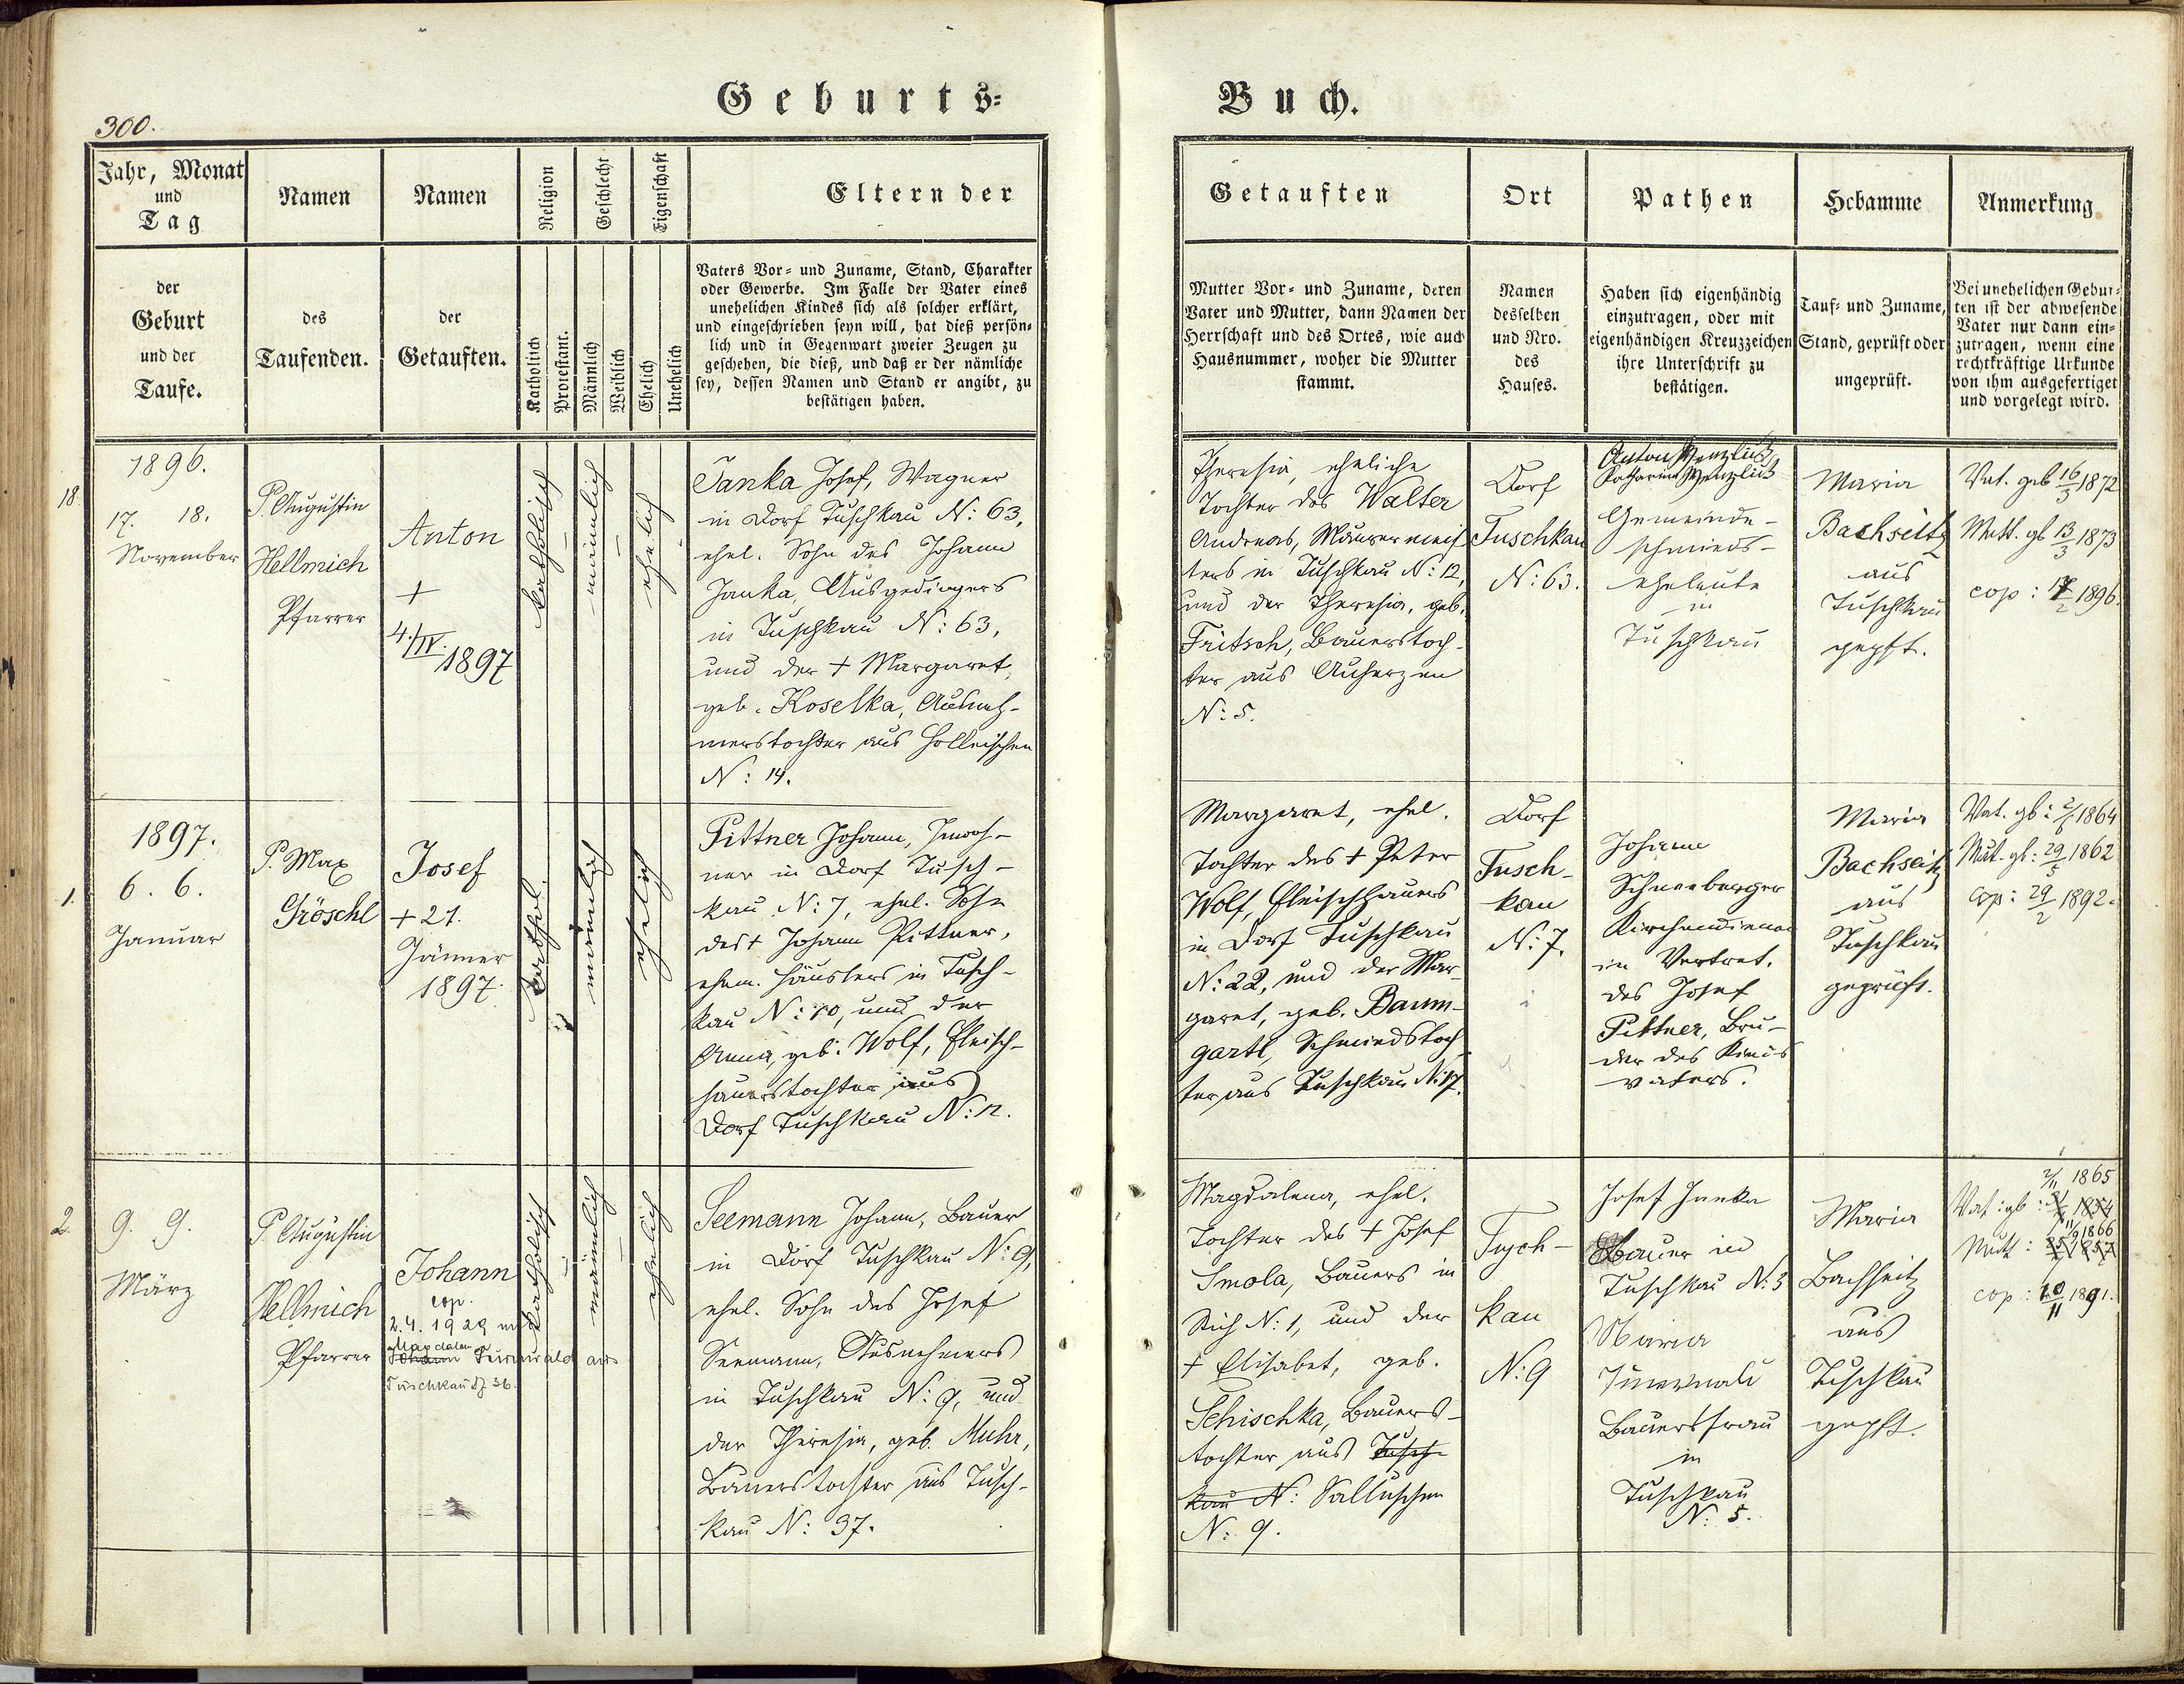 300.
Geburts=
Jahr, Monat
und
Tag
Namen
Namen
Religion
Geschlecht
Eigenschaft
Eltern der
der
Geburt
und der
Taufe.
des
Taufenden.
der
Getauften.
Katholisch
Protestant.
Männlich
Weiblich
Ehelich
Unehelich
Vaters Vor= und Zuname, Stand, Charakter
oder Gewerbe. Im Falle der Vater eines
unehelichen Kindes sich als solcher erklärt,
und eingeschrieben seyn will, hat dieß persön=
lich und in Gegenwart zweier Zeugen zu
geschehen, die dieß, und daß er der nämliche
sey, dessen Namen und Stand er angibt, zu
bestätigen haben.
18.
1896.
17. 18.
November
P. Augustin
Hellmich
Pfarrer
Anton
+
4./IV.
1897
katholisch
männlich
ehelich
Janka Josef, Wagner
in Dorf Tuschkau N: 63,
ehel. Sohn des Johann
Janka, Ausgedingers
in Tuschkau N: 63,
und der + Margaret,
geb. Koselka, Ausneh-
merstochter aus Holleischen
N: 14.
1.
1897.
6. 6.
Januar
P. Max
Gröschl
Josef
+ 21.
Jänner
1897.
kathol.
männlich
ehelich
Pittner Johann, Inwoh-
ner in Dorf Tusch-
kau N: 7, ehel. Sohn
des + Johann Pittner,
ehem. Häuslers in Tusch-
kau N: 10, und der
Anna, geb. Wolf, Fleisch-
hauerstochter aus
Dorf Tuschkau N: 12.
2.
9. 9.
März
P. Augustin
Hellmich
Pfarrer
Johann
cop.
2.4. 1929 mit
Magdalena
aus
Tuschkau 36.
katholisch
männlich
ehelich
Seemann Johann, Bauer
in Dorf Tuschkau N: 9,
ehel. Sohn des Josef
Seemann, Ausnehmers
in Tuschkau N: 9, und
der Theresia, geb. Muhr,
Bauerstochter aus Tusch-
kau N: 37.
Buch.
Getauften
Ort
Pathen
Hebamme
Anmerkung
Mutter Vor= und Zuname, deren
Vater und Mutter, dann Namen der
Herrschaft und des Ortes, wie auch
Hausnummer, woher die Mutter
stammt.
Namen
desselben
und Nro.
des
Hauses.
Haben sich eigenhändig
einzutragen, oder mit
eigenhändigen Kreuzzeichen
ihre Unterschrift zu
bestätigen.
Tauf= und Zuname,
Stand, geprüft oder
ungeprüft.
Bei unehelichen Gebur=
ten ist der abwesende
Vater nur dann ein=
zutragen, wenn eine
rechtkräftige Urkunde
von ihm ausgefertiget
und vorgelegt wird.
Theresia, eheliche
Tochter des Walter
Andreas, Maurermeis
ters in Tuschkau N: 12,
und der Theresia, geb.
Fritsch, Bauerstoch-
ter aus Auherzen
N: 5.
Dorf
Tuschkau
N: 63.
Anton Wenzlick
Katharina Wenzlick
Gemeinde-
schmieds-
eheleute
in
Tuschkau
Maria
Bachseitz
aus
Tuschkau
gepft.
Vat. geb 16/3 1872
Mutt. gb 13/3 1873
cop: 17/2 1896.
Margaret, ehel.
Tochter des + Peter
Wolf, Fleischhauers
in Dorf Tuschkau
N: 22, und der Mar-
garet, geb. Baum-
gartl, Schmiedstoch-
ter aus Tuschkau N: 17.
Dorf
Tusch-
kau
N: 7.
Johann
Schneeberger
Kirchendiener
in Vertret.
des Josef
Pittner, Bru-
der des Kinds
vaters.
Maria
Bachseitz
aus
Tuschkau
geprüft.
Vat. gb: 2/6 1864
Mut. gb: 29/5 1862
cop: 29/2 1892.
Magdalena, ehel.
Tochter des + Josef
Smola, Bauers in
N: 1, und der
+ Elisabet, geb.
Schischka, Bauers-
tochter aus Tusch-
kau N: Salluschen
N: 9.
Tusch-
kau
N: 9
Josef Janka
Bauer in
Tuschkau N: 3
Maria
Bauersfrau
in
Tuschkau
N: 5.
Maria
Bachseitz
aus
Tuschkau
gepft.
2/11 1865
Vat: gb: 1854
11/9 1866
Mutt: 1857
cop: 10/11 1891.